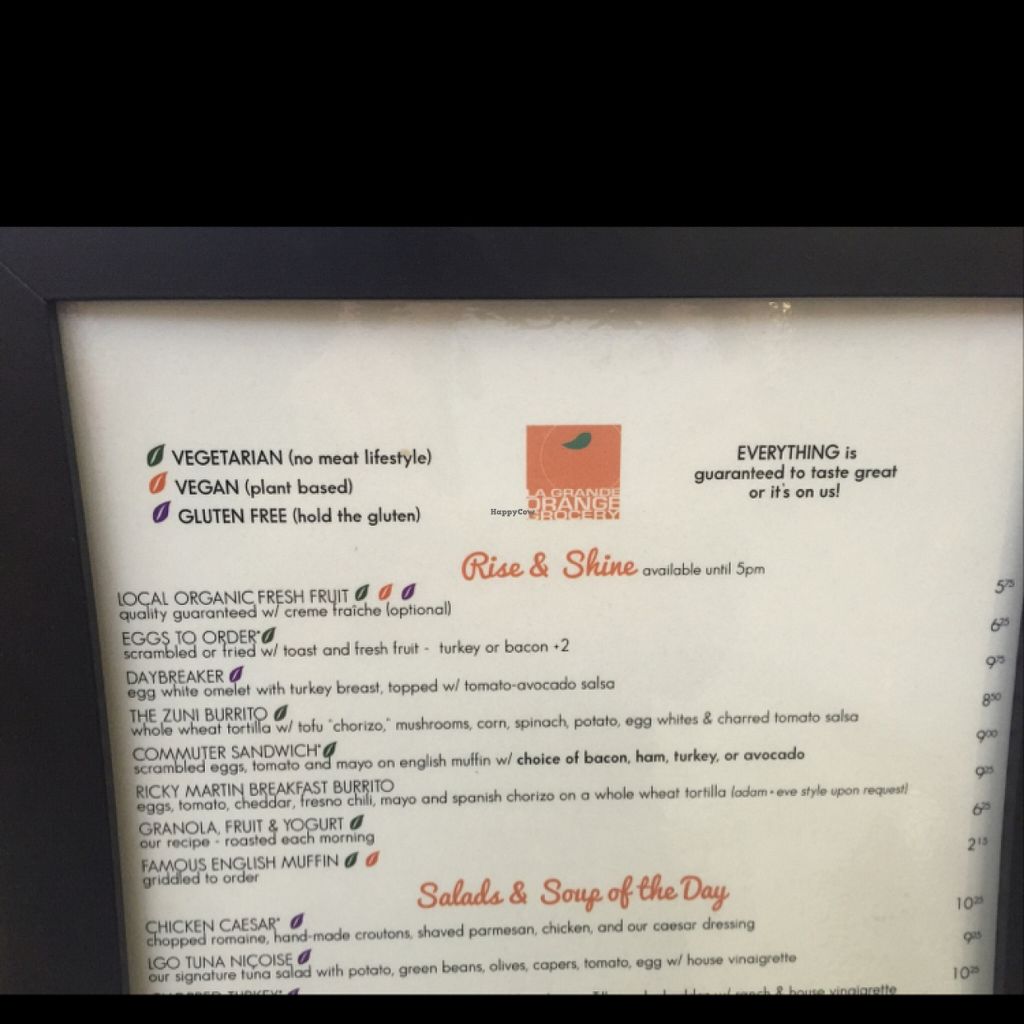 VEGETARIAN (no meat lifestyle)
VEGAN (plant based)
GLUTEN FREE (hold the gluten)
LA GRANDE
ORANGE
GROCERY
HappyCow
EVERYTHING is
guaranteed to taste great
or it's on us!
Rise & Shine available until 5pm
LOCAL ORGANIC FRESH FRUIT 5.75
quality guaranteed w/ creme fraîche (optional)
EGGS TO ORDER* 6.25
scrambled or fried w/ toast and fresh fruit - turkey or bacon +2
DAYBREAKER 9.75
egg white omelet with turkey breast, topped w/ tomato-avocado salsa
THE ZUNI BURRITO 8.50
whole wheat tortilla w/ tofu "chorizo," mushrooms, corn, spinach, potato, egg whites & charred tomato salsa
COMMUTER SANDWICH* 9.00
scrambled eggs, tomato and mayo on english muffin w/ choice of bacon, ham, turkey, or avocado
RICKY MARTIN BREAKFAST BURRITO 9.25
eggs, tomato, cheddar, fresno chili, mayo and spanish chorizo on a whole wheat tortilla (adam + eve style upon request)
GRANOLA, FRUIT & YOGURT 6.25
our recipe - roasted each morning
FAMOUS ENGLISH MUFFIN 2.15
griddled to order
Salads & Soup of the Day
CHICKEN CAESAR* 10.25
chopped romaine, hand-made croutons, shaved parmesan, chicken, and our caesar dressing
LGO TUNA NIÇOISE 9.25
our signature tuna salad with potato, green beans, olives, capers, tomato, egg w/ house vinaigrette
10.25
ranch & house vinaigrette